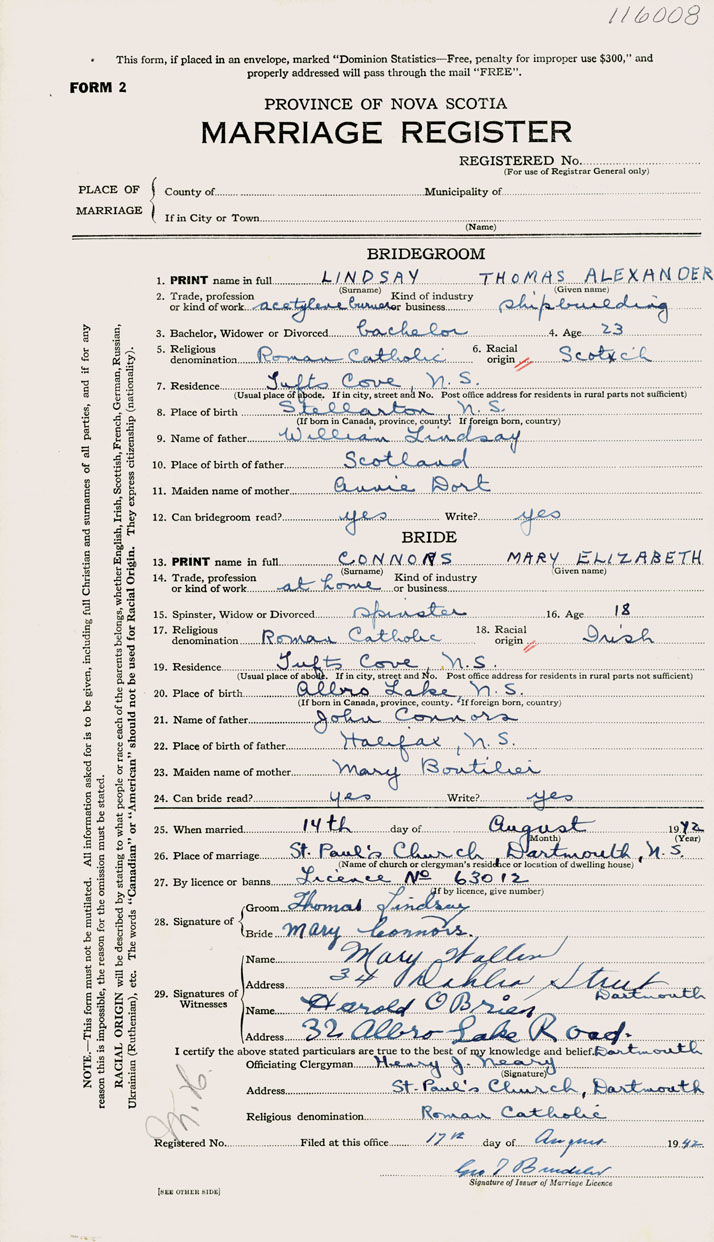 116008
This form, if placed in an envelope, marked “Dominion Statistics—Free, penalty for improper use $300,” and
properly addressed will pass through the mail “FREE”.
FORM 2
PROVINCE OF NOVA SCOTIA
MARRIAGE REGISTER
REGISTERED No.
(For use of Registrar General only)
PLACE OF MARRIAGE
County of Municipality of
If in City or Town
(Name)
BRIDEGROOM
1. PRINT name in full LINDSAY THOMAS ALEXANDER
(Surname) (Given name)
2. Trade, profession or kind of work acetylene burner Kind of industry or business shipbuilding
3. Bachelor, Widower or Divorced bachelor 4. Age 23
5. Religious denomination Roman Catholic 6. Racial origin Scotxch
7. Residence Tufts Cove, N.S.
(Usual place of abode. If in city, street and No. Post office address for residents in rural parts not sufficient)
8. Place of birth Stellarton, N.S.
(If born in Canada, province, county. If foreign born, country)
9. Name of father William Lindsay
10. Place of birth of father Scotland
11. Maiden name of mother Annie Dort
12. Can bridegroom read? yes Write? yes
BRIDE
13. PRINT name in full CONNORS MARY ELIZABETH
(Surname) (Given name)
14. Trade, profession or kind of work at home Kind of industry or business
15. Spinster, Widow or Divorced spinster 16. Age 18
17. Religious denomination Roman Catholic 18. Racial origin Irish
19. Residence Tufts Cove, N.S.
(Usual place of abode. If in city, street and No. Post office address for residents in rural parts not sufficient)
20. Place of birth Albro Lake, N.S.
(If born in Canada, province, county. If foreign born, country)
21. Name of father John Connors
22. Place of birth of father Halifax, N.S.
23. Maiden name of mother Mary Boutilier
24. Can bride read? yes Write? yes
25. When married 14th day of August 1942
(Month) (Year)
26. Place of marriage St. Paul's Church, Dartmouth, N.S.
(Name of church or clergyman's residence or location of dwelling house)
27. By licence or banns Licence No 63012
(If by licence, give number)
28. Signature of
Groom Thomas Lindsay
Bride Mary Connors.
29. Signatures of Witnesses
Name Mary Wallen
Address 34 Dahlia Street
Dartmouth
Name Harold O'Brien
Address 32 Albro Lake Road.
I certify the above stated particulars are true to the best of my knowledge and belief. Dartmouth
Officiating Clergyman Henry J. Neary
(Signature)
Address St. Paul's Church, Dartmouth
Religious denomination Roman Catholic
Registered No. Filed at this office 17th day of August 1942
Signature of Issuer of Marriage Licence
[SEE OTHER SIDE]
NOTE.—This form must not be mutilated. All information asked for is to be given, including full Christian and surnames of all parties, and if for any
reason this is impossible, the reason for the omission must be stated.
RACIAL ORIGIN will be described by stating to what people or race each of the parents belongs, whether English, Irish, Scottish, French, German, Russian,
Ukrainian (Ruthenian), etc. The words “Canadian” or “American” should not be used for Racial Origin. They express citizenship (nationality).